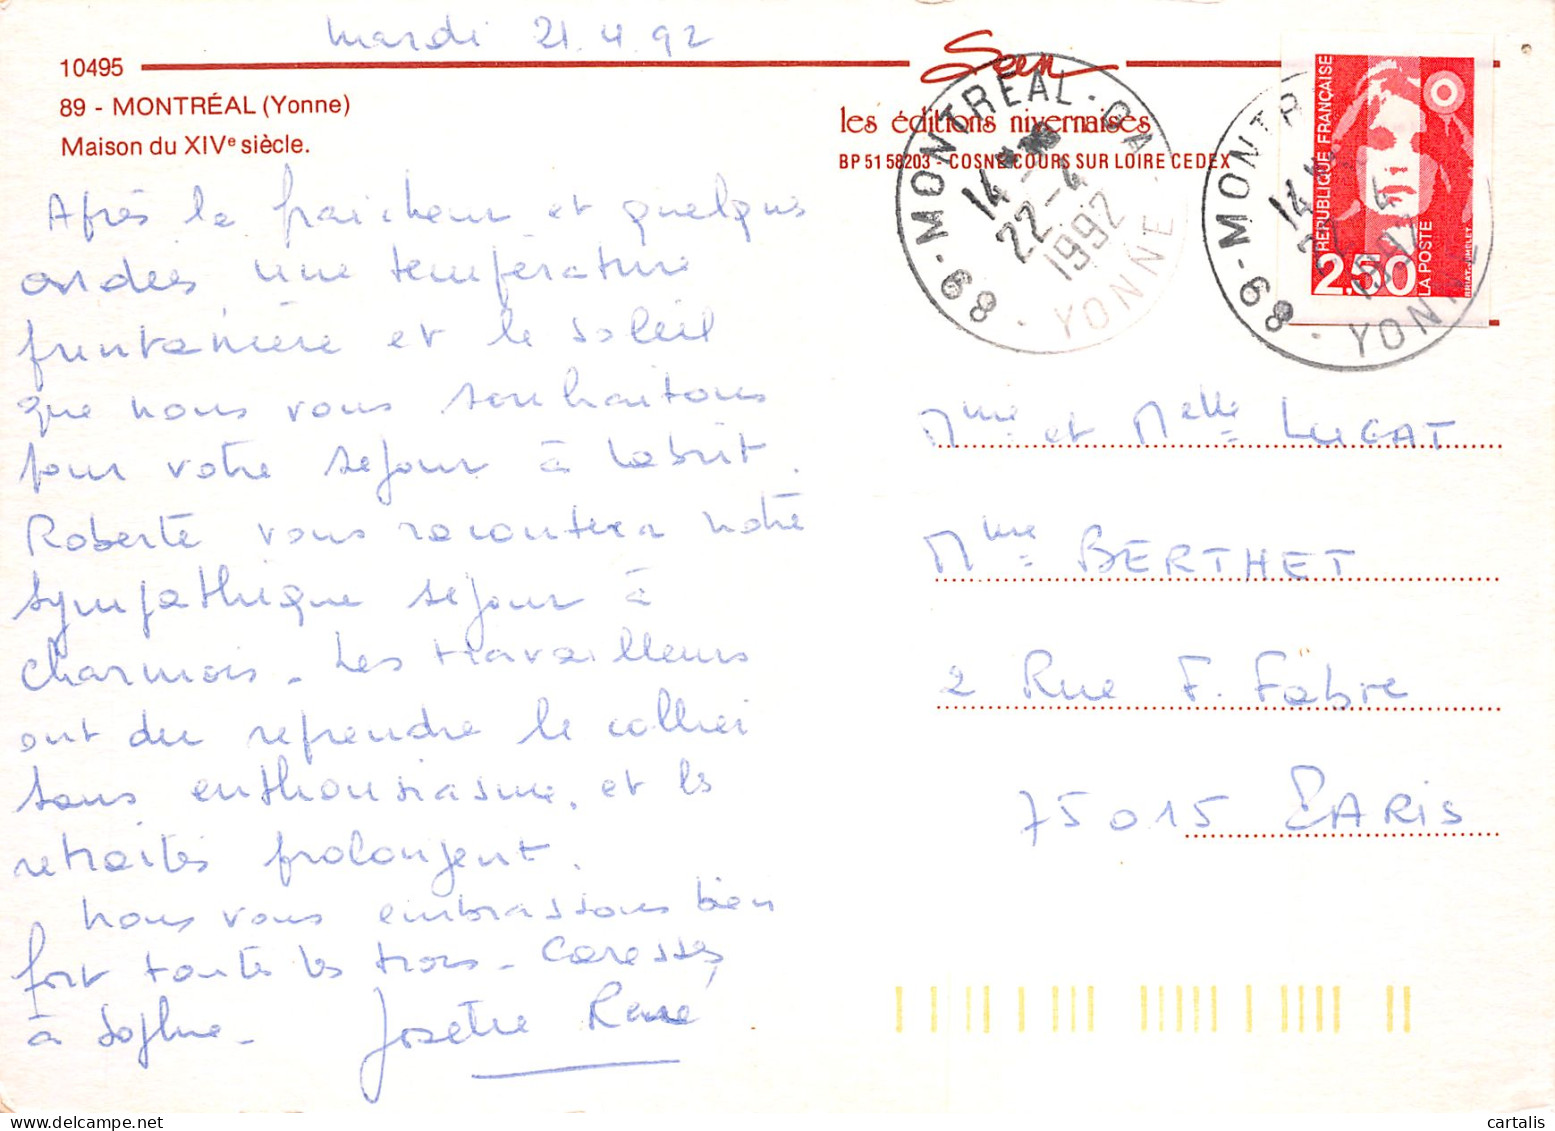 mardi 21.4.92
10495
89 - MONTRÉAL (Yonne)
Maison du XIVe siècle.
Seen
les éditions nivernaises
BP 51 58203 - COSNE COURS SUR LOIRE CEDEX
89 - MONTREAL - CA
14 H
22 - 4
1992
YONNE
RÉPUBLIQUE FRANÇAISE
2,50
LA POSTE
89 - MONTR
YONNE
Après la fraicheur et quelques
ondées une température
printanière et le soleil
que nous vous souhaitons
pour votre séjour à Labrit.
Roberte vous racontera notre
sympathique séjour à
Charmois - Les travailleurs
ont du reprendre le collier
sans enthousiasme, et les
retraités prolongent.
Nous vous embrassons bien
fort toutes les trois - Caresses
à Sophie - Josette René
Mme et Melle LUCAT
Mme BERTHET
2 Rue F. Fabre
75015 PARIS
cartalis